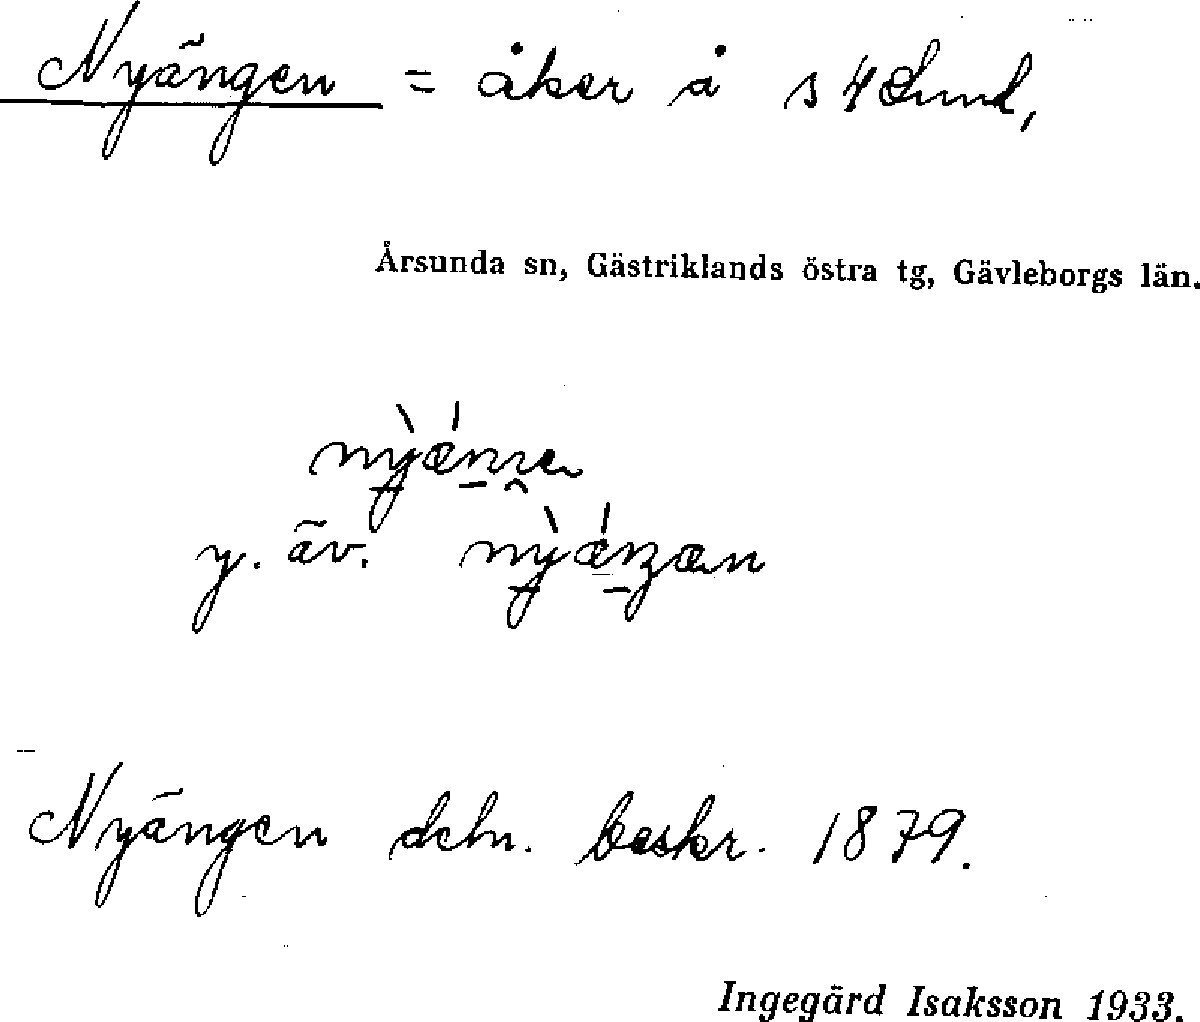 Nyängen = åker å s 4 Lund,
Årsunda sn, Gästriklands östra tg, Gävleborgs län.
y. äv.
Nyängen dehn. beskr. 1879.
Ingegärd Isaksson 1933.